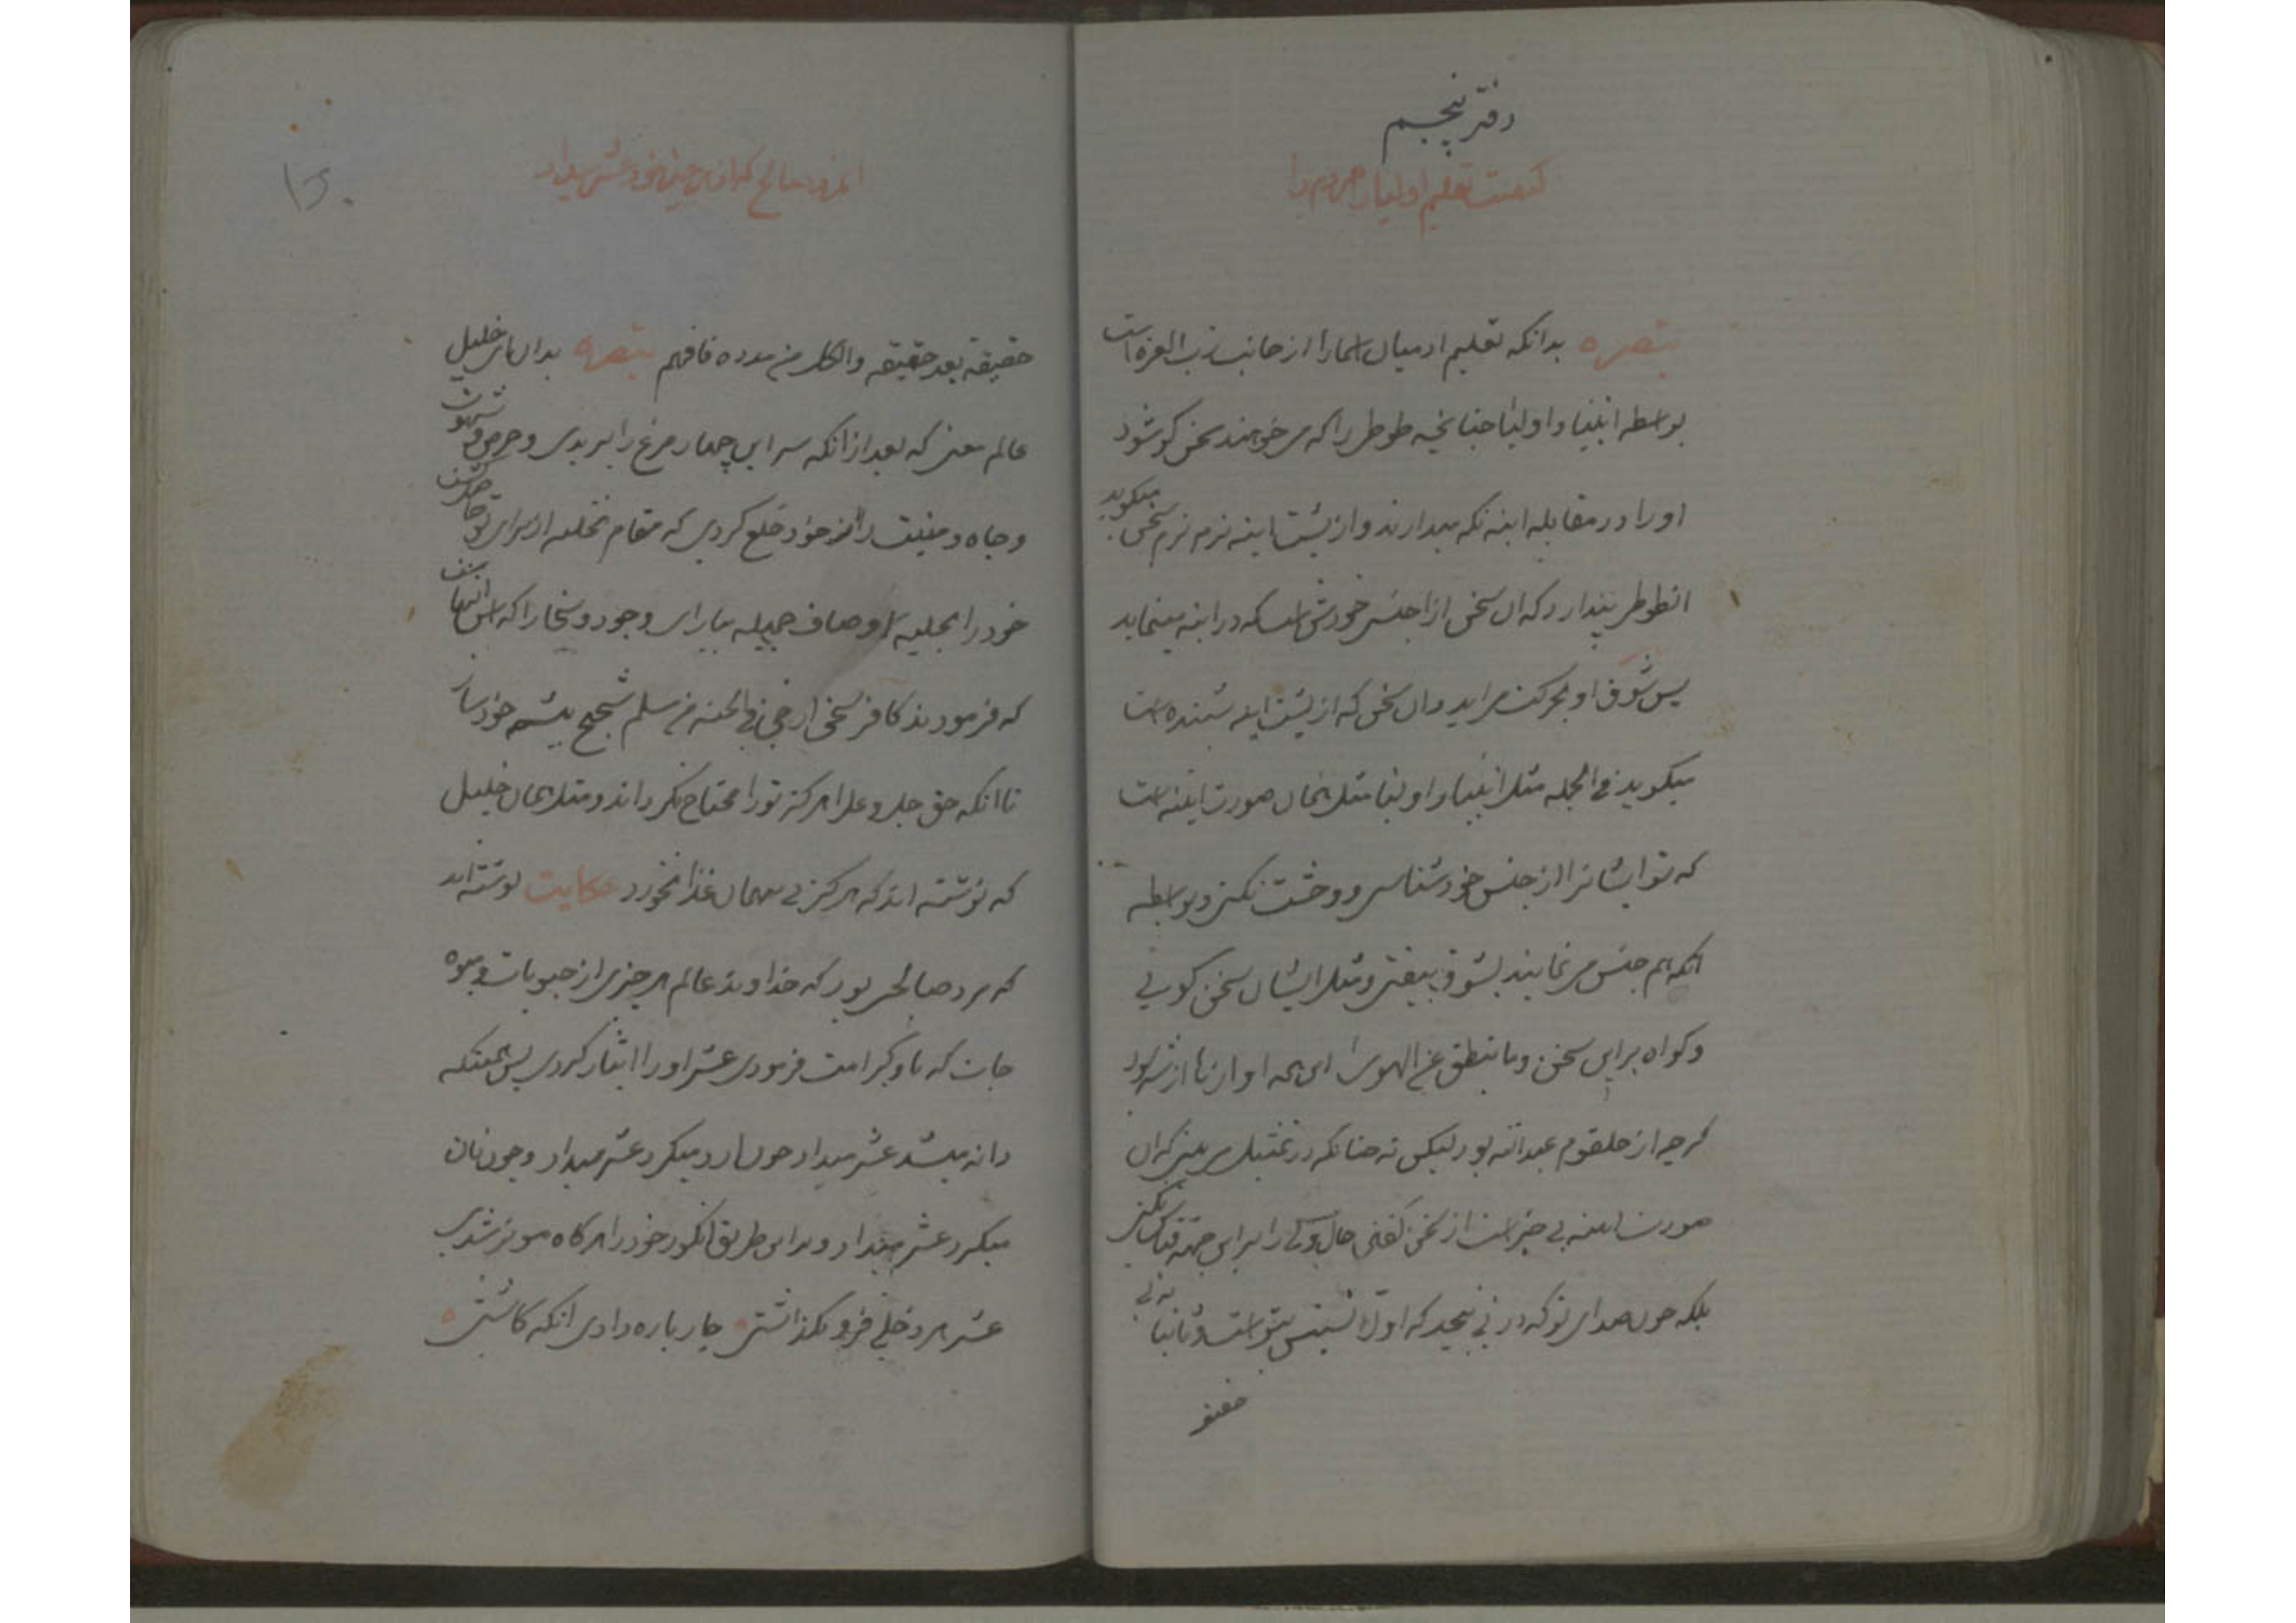 دفتر پنجم
کیفیت تعلیم اولیا مردم را
تبصره بدانکه تعلیم ادمیان اسما را از جانب رب العزه است
بواسطه انبیا و اولیا چنانچه طوطی را که می خواهند سخن کو شود
او را در مقابله اینه نکه میدارند و از پشت اینه نرم نرم سخن میکوید
انطوطی پندارد که ان سخن از اجنس خودش است که در اینه مینماید
پس بشوق او بحرکت می اید و ان سخن که از پشت اینه شنیده است
میکوید فی الجمله مثل انبیا و اولیا مثل همان صورت اینه است
که تو ایشانرا از جنس خود شناسی و وحشت نکنی و بواسطه
انکه هم جنس می نمایند بشوق بیفتی و مثل ایشان سخن کویی
و کواه بر این سخن وما ینطق عن الهوی این همه اوازها از شه بود
کرچه از حلقوم عبدالله بود لیکن نه چنانکه در تمثیل می بینی که ان
صورت اینه بی خبر است از سخن کفتن حال ولی را بر این جهة قیاس نکنی
بلکه چون صدای تو که در نی پیچد که اولا نسبتش بتو است و ثانیا به نی
حقیقة بعد حقیقه والکل من مدده فافهم تبصره بدان ای خلیل
عالم معنی که بعد از انکه سر این چهار مرغ را بریدی و حرص و شهوت
و جاه و منیت را از خود خلع کردی که مقام تخلیه از برای تو حاصل شد
خود را بحلیه اوصاف جمیله بیارای وجود و سخا را که اس انهاست
که فرمودند کافر سخی ارجی فی الجنه من مسلم شحیح پیشه خود ساز
تا انکه حق جل و علا هرکز تو را محتاج نکرداند و مثل همان خلیل
که نوشته اند که هرکز بی مهمان غذا نخورد حکایت نوشته اند
که مرد صالحی بود که خداوند عالم هر چیزی از حبوبات و میوه
جات که باو کرامت فرمودی عشر او را ایثار کردی پس همینکه
دانه میشد عشر میداد چون ارد میکرد عشر میداد و چون نان
میکرد عشر میداد و بر این طریق انکور خود را هرکاه مویز شدی
عشر هر دخلی فرو نکذاشتی چار باره دادی انکه کاشتی